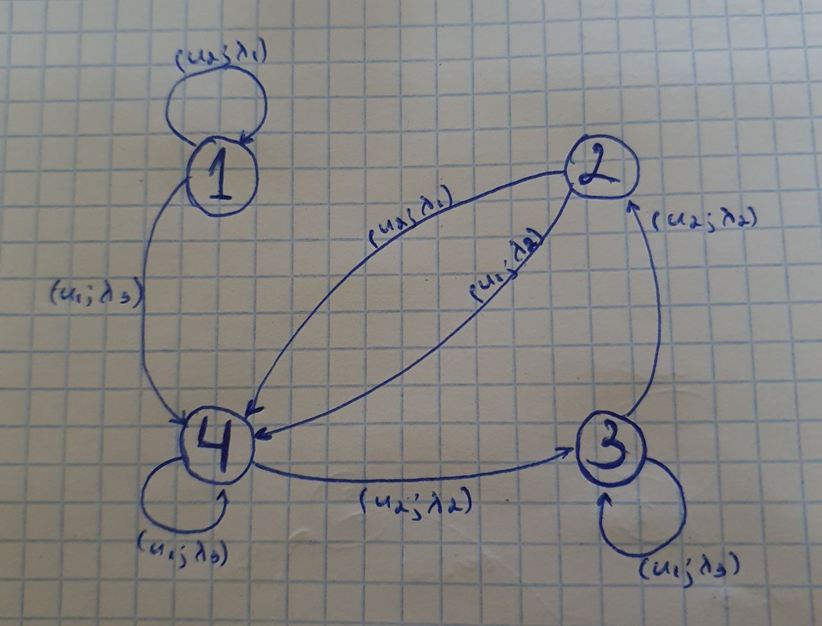 (u₂; λ₁)
1
2
(u₂; λ₁)
(u₂; λ₂)
(u₁; λ₂)
(u₁; λ₃)
4
3
(u₂; λ₂)
(u₁; λ₃)
(u₁; λ₃)